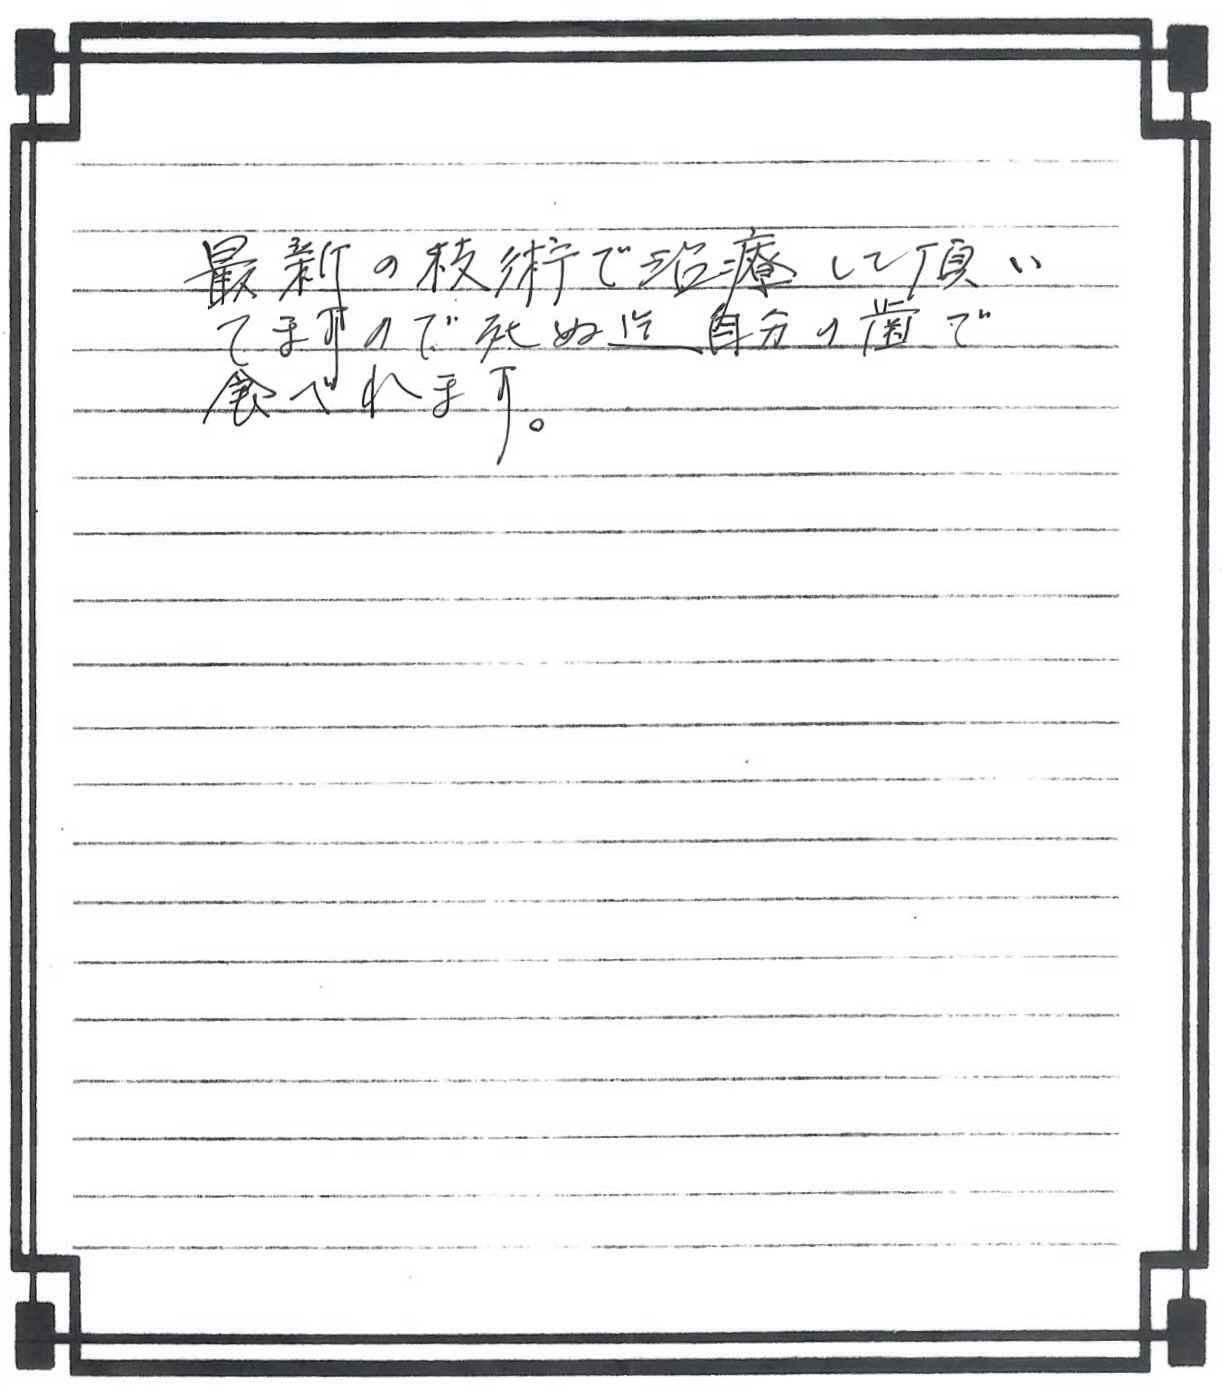 最新の技術で治療して頂い
てますので死ぬ迄自分の歯で
食べれます。